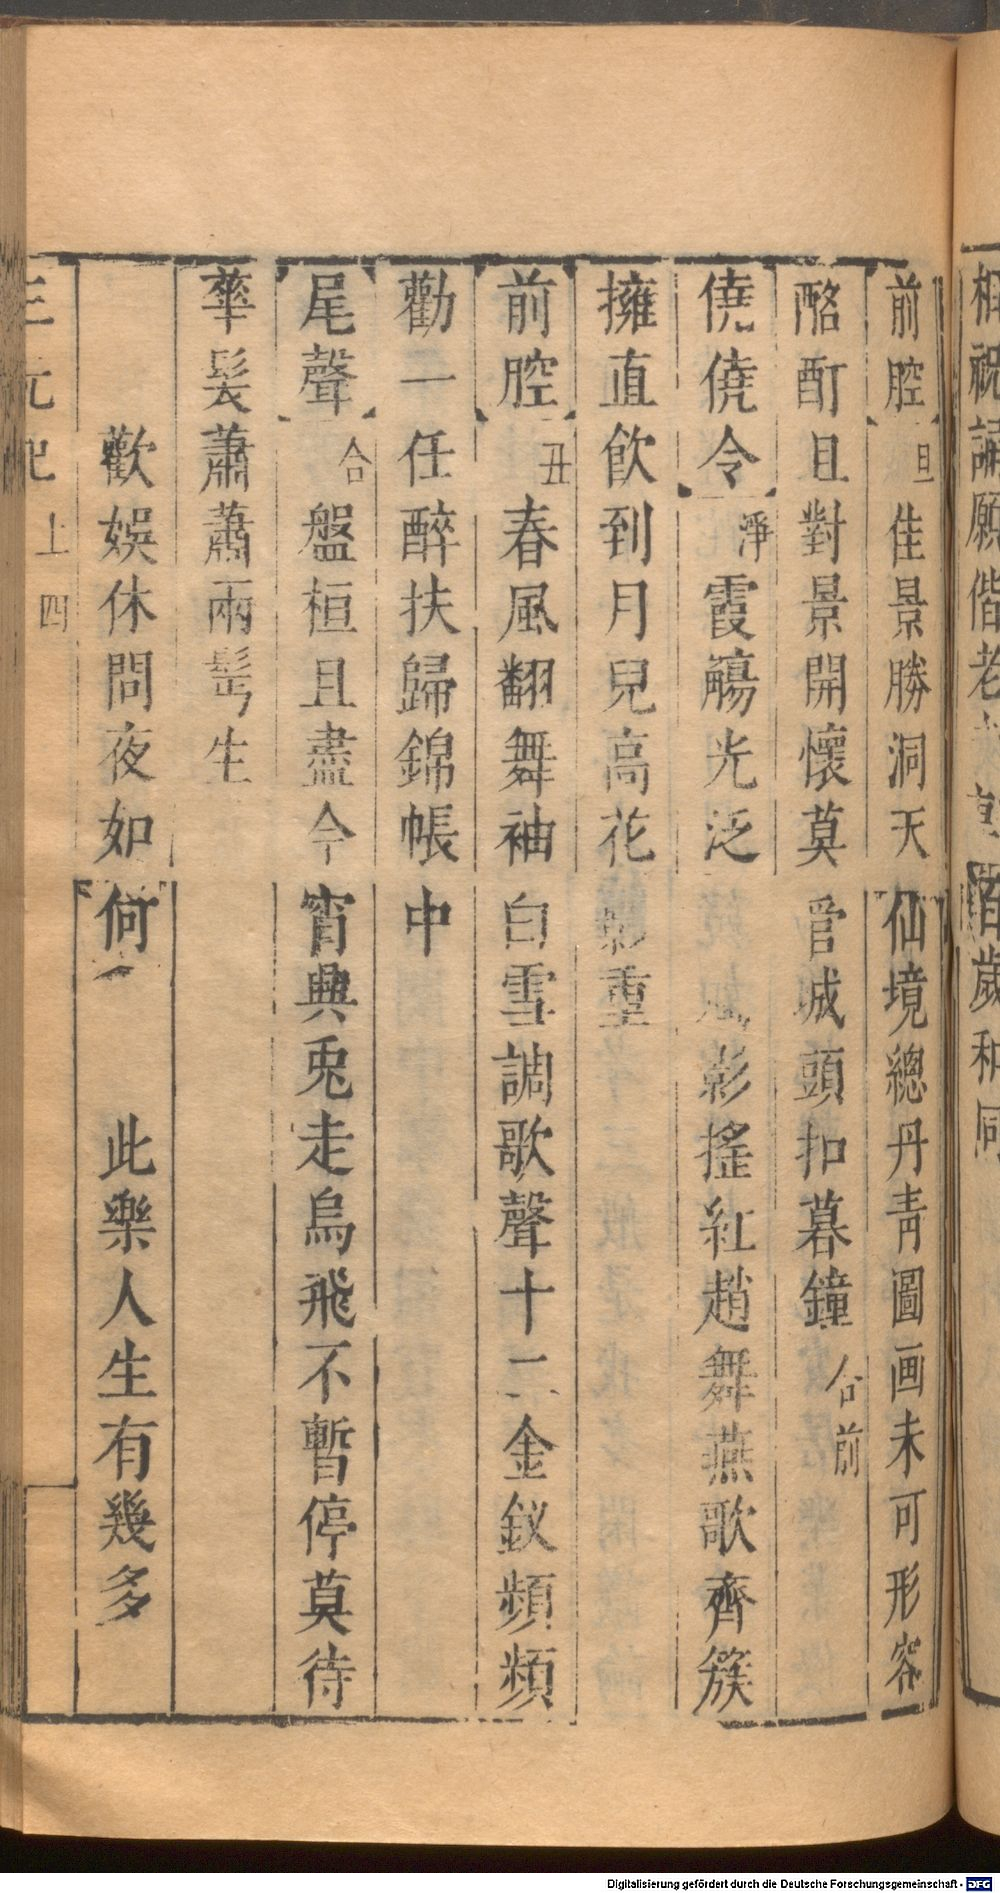 相祝誦願偕老 百歲和同
前腔 旦 佳景勝洞天仙境總丹青圖画未可形容
酩酊且對景開懷莫管城頭扣暮鐘 合前
僥僥令 淨 霞觴光泛 影搖紅趙舞燕歌齊簇
擁直飲到月兒高花影重
前腔 丑 春風翻舞袖白雪調歌聲十二金釵頻頻
勸一任醉扶歸錦帳中
尾聲 合 盤桓且盡今宵興兎走烏飛不暫停莫待
華髮蕭蕭兩髩生
歡娛休問夜如何 此樂人生有幾多
三元記 上 四
Digitalisierung gefördert durch die Deutsche Forschungsgemeinschaft - DFG